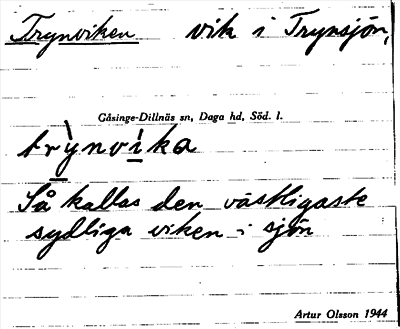 Trynviken vik i Trynsjön,
Gåsinge-Dillnäs sn, Daga hd, Söd. l.
trỳnvìka
Så kallas den västligaste
sydliga viken i sjön
Artur Olsson 1944